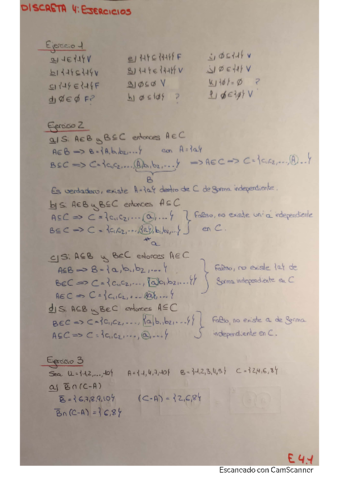 DISCRETA 4: EJERCICIOS
Ejercicio 1
a) 1∈{1} V
b) {1}⊆{1} V
c) {1}∈{1} F
d) ∅∈∅ F?
e) {1}⊆{{1}} F
f) {1}∈{{1}} V
g) ∅⊆∅ V
h) ∅∈{∅} ?
i) ∅⊆{1} V
j) ∅∈{1} V
k) {∅}=∅ ?
l) ∅∈{∅} V
Ejercicio 2
a) Si A∈B y B⊆C entonces A∈C
A∈B => B={A,b,b₂,...} con A={a}
B⊆C => C={c,c₂,...,(A,b,b₂,...} => A∈C => C={c,c₂,...,(A)...}
B
Es verdadero, existe A={a} dentro de C de forma independiente.
b) Si A∈B y B⊆C entonces A⊆C
A⊆C => C={c,c₂,...,(a)...}
B⊆C => C={c,c₂,...,{a},b,b₂,...}
≠a
Falso, no existe un a independiente en C.
c) Si A⊆B y B∈C entonces A∈C
A⊆B => B={a,b,b₂,...}
B∈C => C={c,c₂,...,{a,b,b₂,...}}
A∈C => C={c,c₂,...,{a},...}
Falso, no existe {a} de forma independiente a C
d) Si A⊆B y B∈C entonces A⊆C
B∈C => C={c,c₂,...,{a,b,b₂,...}}
A⊆C => C={c,c₂,...,a,...}
Falso, no existe a de forma independiente en C.
Ejercicio 3
Sea U={1,2,...,10} A={1,4,7,10} B={1,2,3,4,5} C={2,4,6,8}
a) B̅∩(C-A)
B̅={6,7,8,9,10} (C-A)={2,6,8}
B̅∩(C-A)={6,8}
E 4.1
Escaneado con CamScanner